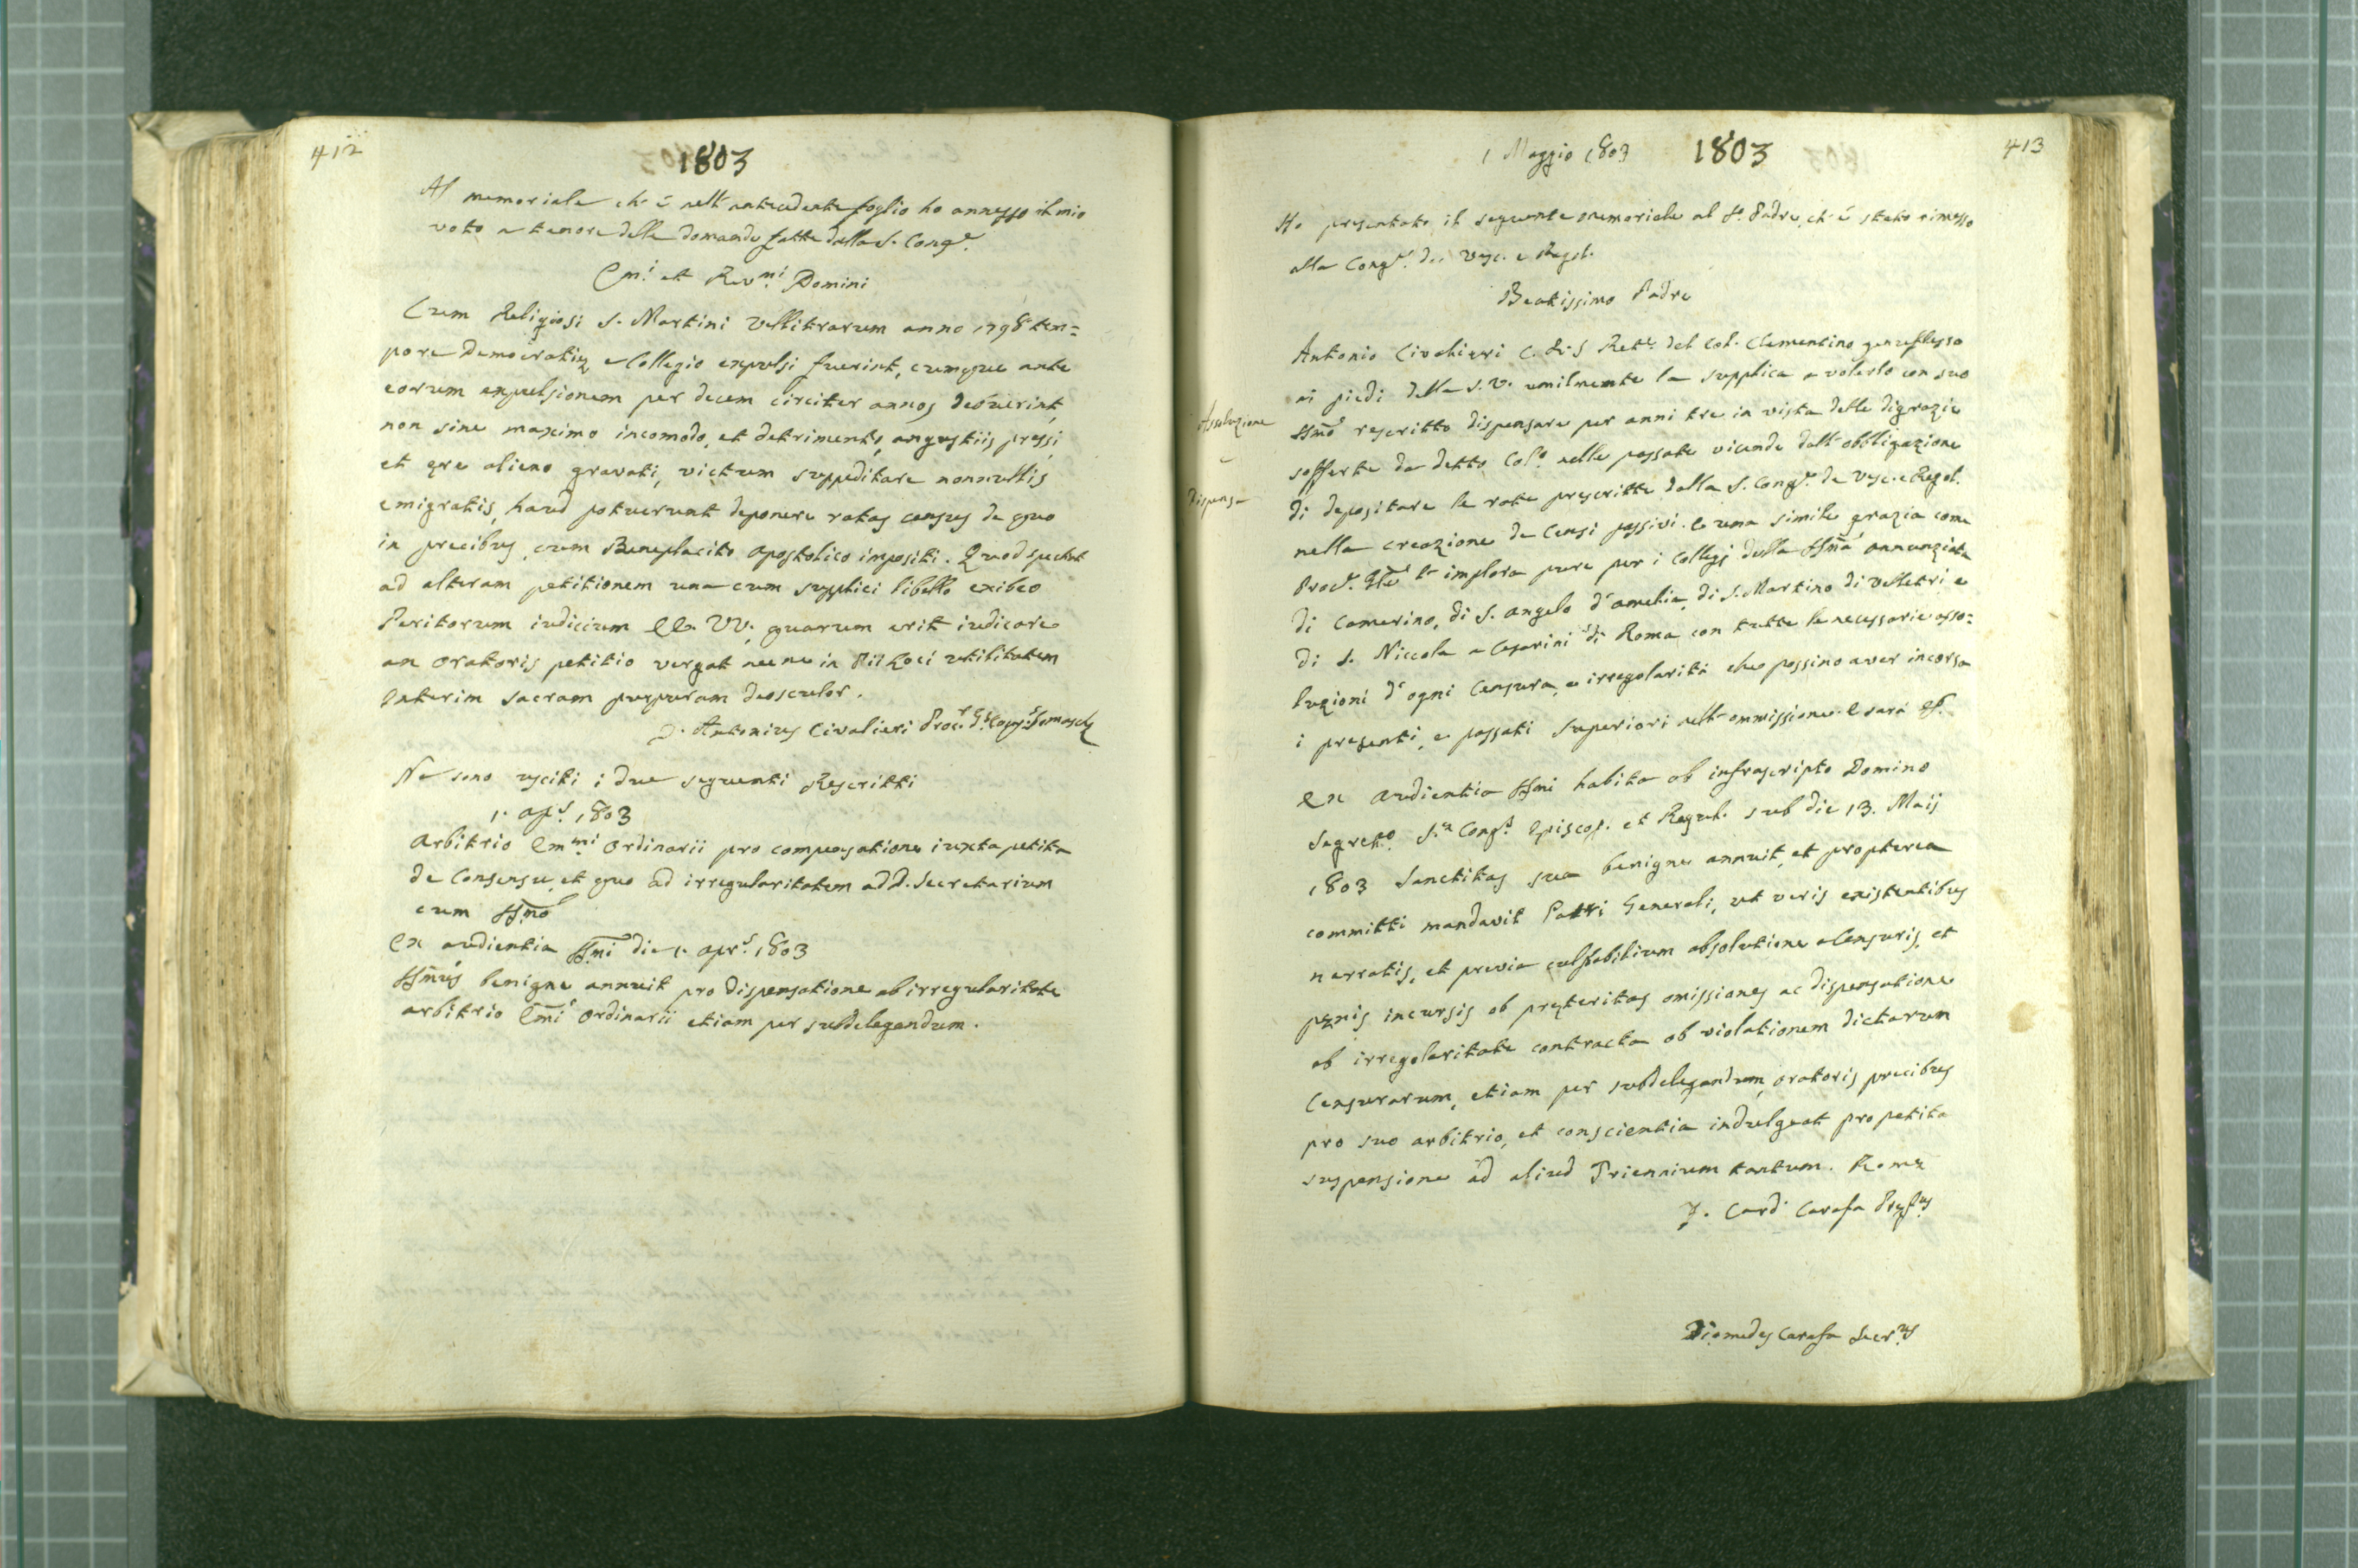 412
1803
Al memoriale ch'è nell'antecedente foglio ho annesso il mio
voto a tenore delle domande fatte dalla S. Cong.e
Em.i et Rev.mi Domini
Cum Religiosi S. Martini Vellitrarum anno 1798 tem=
pore Democratiæ e Collegio expulsi fuerint, cumque ante
eorum expulsionem per decem circiter annos debuerint,
non sine maximo incomodo, et detrimento, angustiis pressi,
et ære alieno gravati, victum suppeditare nonnullis
emigratis, haud potuerunt deponere ratas census de quo
in precibus, cum Beneplacito Apostolico impositi. Quod spectat
ad alteram petitionem una cum supplici libello exibeo
Peritorum iudicium EE. VV. quarum erit iudicare
an oratoris petitio vergat necne in Pii Loci utilitatem
Interim sacram purpuram deosculor.
D. Antonius Civalieri Proc.r G.s Cong.s Somaschæ
Ne sono usciti i due seguenti Rescritti
1. ap.s 1803
Arbitrio Em.mi Ordinarii pro compensatione iuxta petita
de Consensu, et quo ad irregularitatem ad D. Secretarium
cum SSmo
Ex audientia SSmi die 1. apr.s 1803
SSmus benigne annuit pro dispensatione ab irregularitate
arbitrio Emi Ordinarii etiam per subdelegandum.
1 Maggio 1803
1803
413
Ho presentato il seguente memoriale al S. Padre, ch'è stato rimesso
alla Cong.e de Vesc. e Regol.
Beatissimo Padre
Antonio Civalieri C. R. S Ret.e del Col. Clementino genuflesso
ai piedi della S.V. umilmente la supplica a volerlo con suo
SSmo rescritto dispensare per anni tre in vista delle digrazie
Assoluzione
e
Dispensa
sofferte da detto Col.o nelle passate vicende dall'obbligazione
di depositare le rate prescritte dalla S. Cong.e de Vesc. e Regol.
nella creazione de Censi passivi. E una simile grazia come
Proc.e Gle l'implora pure per i Collegj della SSma Annunziata
di Camerino, di S. Angelo d'Amelia, di S. Martino di Velletri e
di S. Niccola a Cesarini di Roma con tutte le necessarie asso=
luzioni d'ogni Censura, e irregolarità che possino aver incorsa
i presenti, e passati Superiori nell'ommissione. E sarà
Ex Audientia SSmi habita ab infrascripto Domino
Segret.o S.æ Cong.s Episcop. et Regul. sub die 13. Maij
1803 Sanctitas sua benigne annuit, et propterea
committi mandavit Patri Generali, ut veris existentibus
narratis, et previa culpabilium absolutione a Censuris, et
pœnis incursis ob præteritas omissiones ac dispensatione
ab irregolaritate contracta ob violationem dictarum
Censurarum, etiam per subdelegandum, oratoris precibus
pro suo arbitrio, et conscientia indulgeat pro petita
suspensione ad aliud Triennium tantum. Romæ
F. Card. Carafa Præf.us
Diomedes Carafa Secr.us